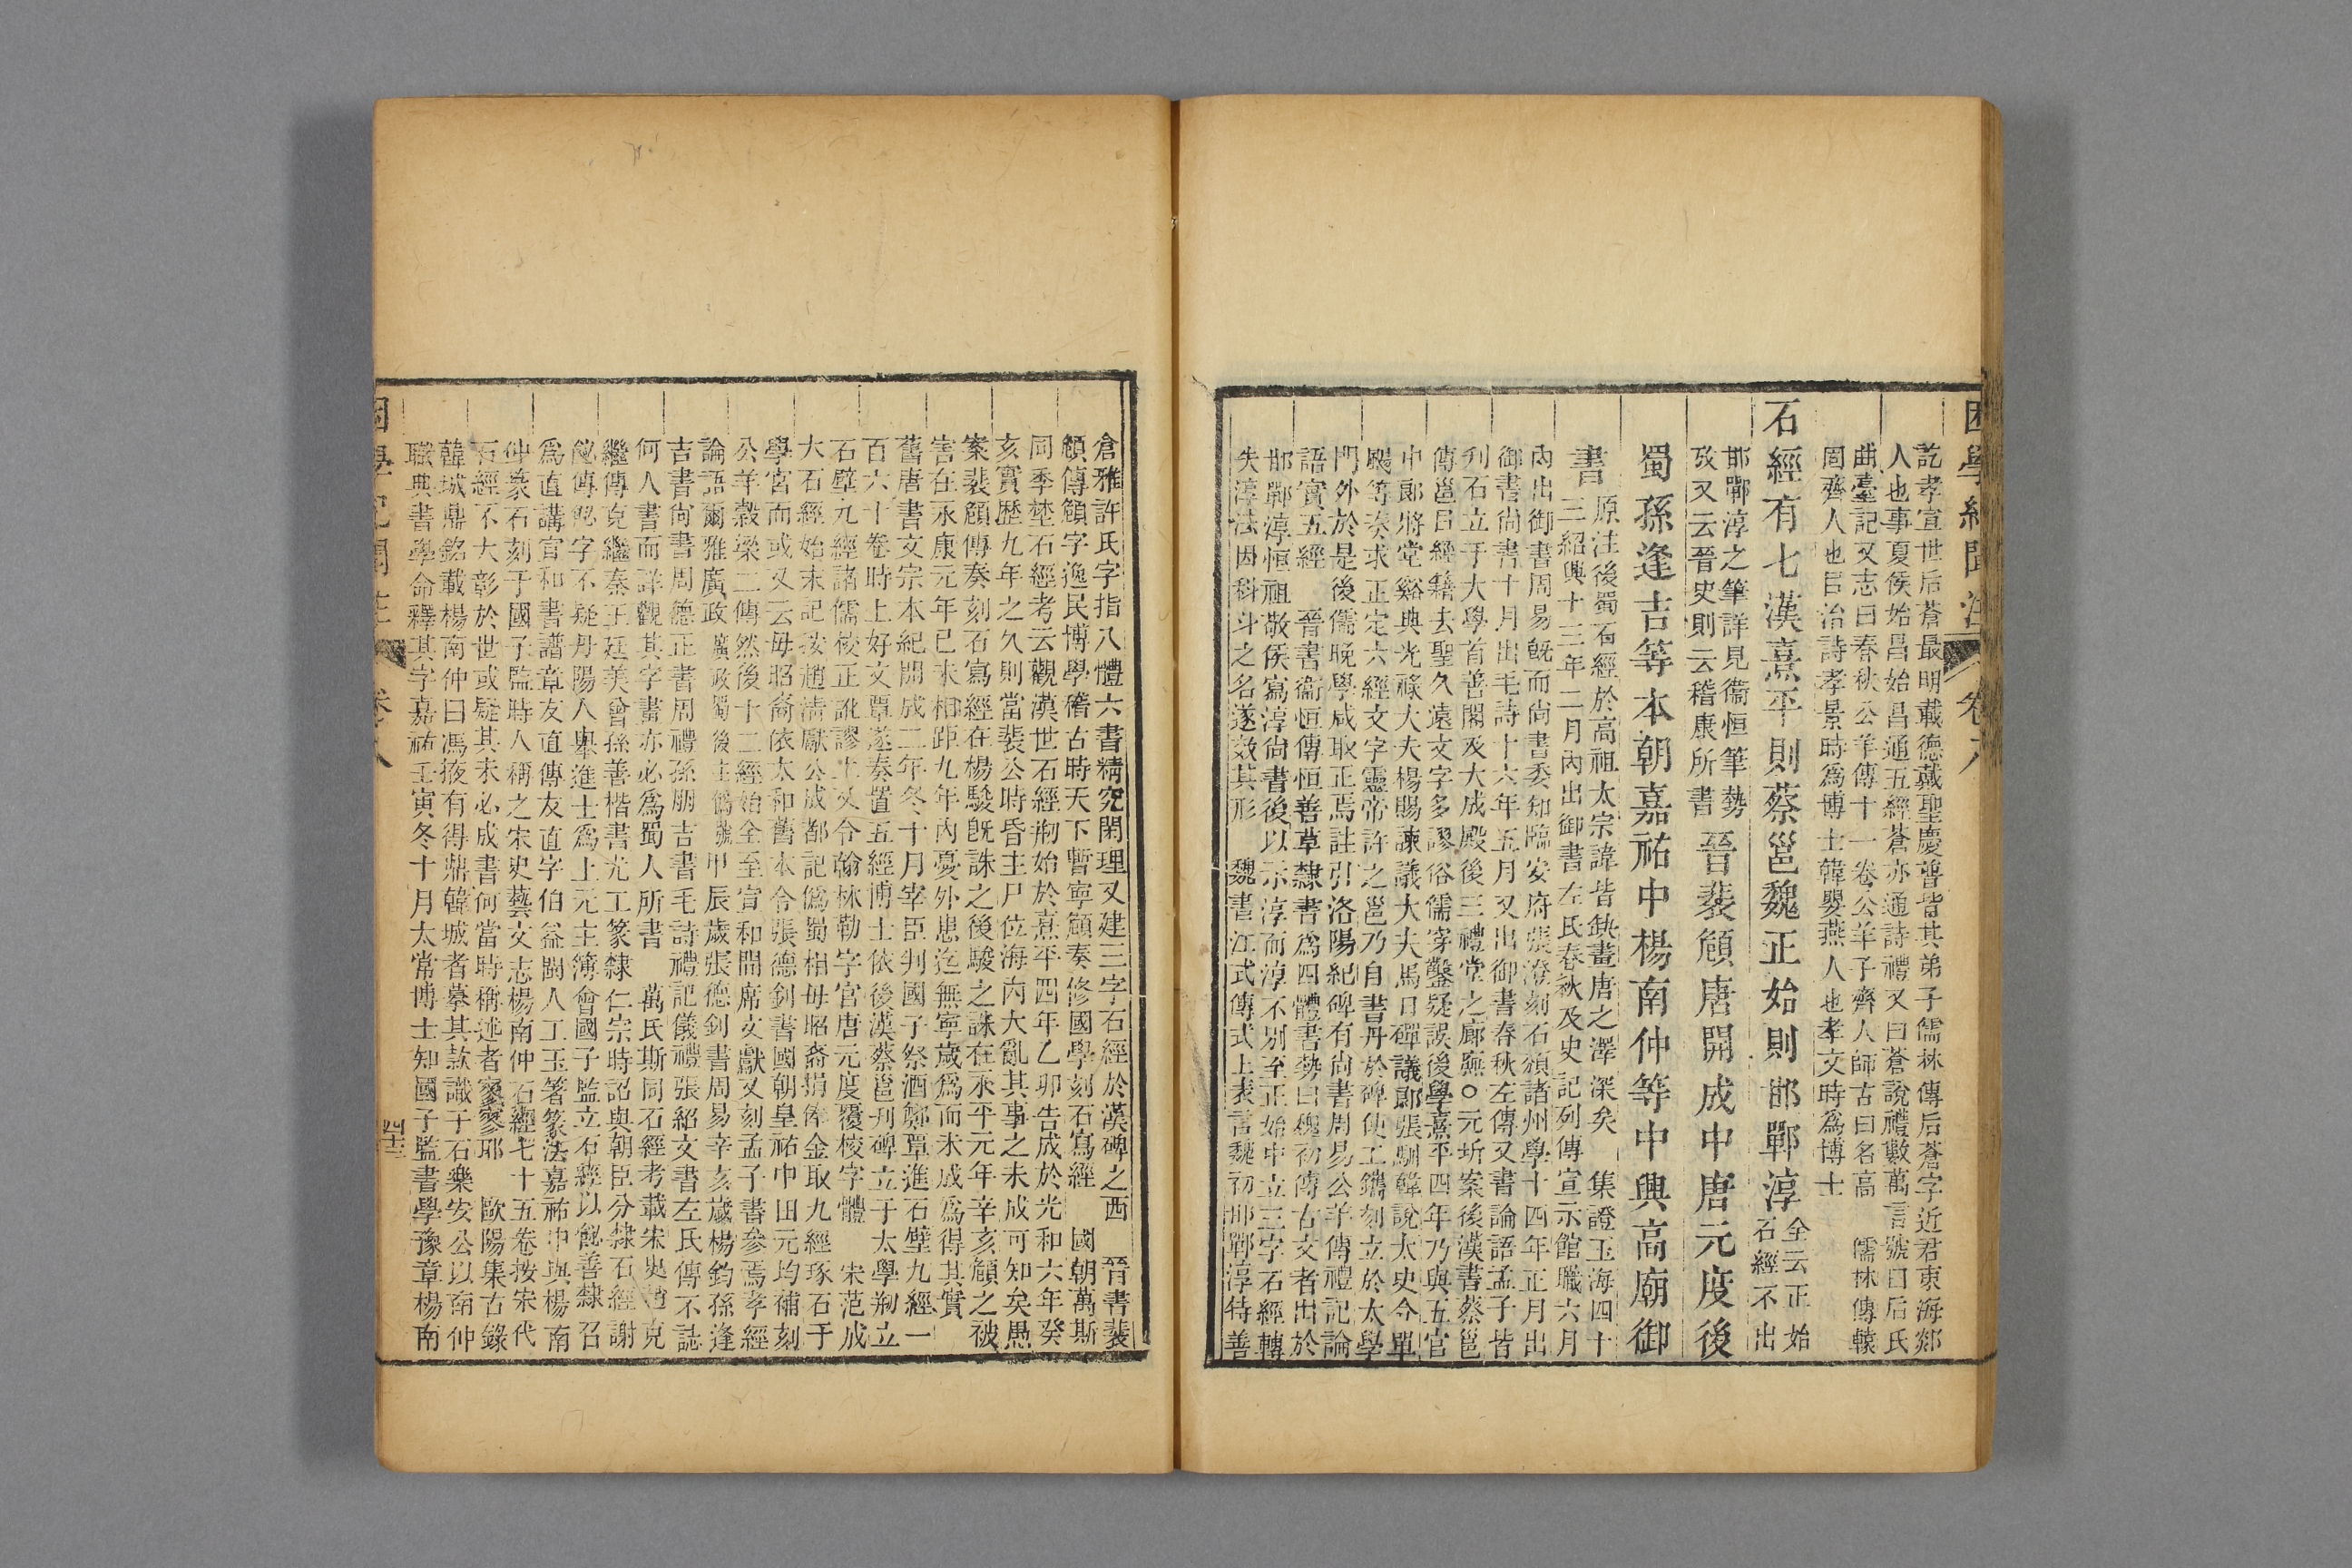 困學紀聞注 卷八
訖孝宣世后蒼最明戴德戴聖慶普皆其弟子儒林傳后蒼字近君東海郯
人也事夏侯始昌始昌通五經蒼亦通詩禮又曰蒼說禮數萬言號曰后氏
曲臺記又志曰春秋公羊傳十一卷公羊子齊人師古曰名高 儒林傳轅
固齊人也目治詩孝景時爲博士韓嬰燕人也孝文時爲博士
石經有七漢熹平則蔡邕魏正始則邯鄲淳
全云正始
石經不出
邯鄲淳之筆詳見衞恒筆勢
攷又云晉史則云稽康所書
晉裴頠唐開成中唐元度後
蜀孫逢吉等本朝嘉祐中楊南仲等中興高廟御
書
原注後蜀石經於高祖太宗諱皆缺畫唐之澤深矣 集證玉海四十
三紹興十三年二月內出御書左氏春秋及史記列傳宣示館職六月
內出御書周易旣而尚書委知臨安府張澄刻石頒諸州學十四年正月出
御書尚書十月出毛詩十六年五月又出御書春秋左傳又書論語孟子皆
刋石立于大學首善閣及大成殿後三禮堂之廊廡○元圻案後漢書蔡邕
傳邕目經籍去聖久遠文字多謬俗儒穿鑿疑誤後學熹平四年乃與五官
中郎將堂谿典光祿大夫楊賜諫議大夫馬日磾議郎張馴韓說太史令單
颺等奏求正定六經文字靈帝許之邕乃自書丹於碑使工鐫刻立於太學
門外於是後儒晚學咸取正焉註引洛陽紀碑有尚書周易公羊傳禮記論
語實五經 晉書衞恒傳恒善草隸書爲四體書勢曰魏初傳古文者出於
邯鄲淳恒祖敬侯寫淳尚書後以示淳而淳不別至正始中立三字石經轉
失淳法因科斗之名遂效其形 魏書江式傳式上表言魏初邯鄲淳特善
倉雅許氏字指八體六書精究閑理又建三字石經於漢碑之西 晉書裴
頠傳頠字逸民博學稽古時天下暫寧頠奏修國學刻石寫經 國朝萬斯
同季埜石經考云觀漢世石經刱始於熹平四年乙卯告成於光和六年癸
亥實歷九年之久則當裴公時昏主尸位海內大亂其事之未成可知矣愚
案裴頠傳奏刻石寫經在楊駿旣誅之後駿之誅在永平元年辛亥頠之被
害在永康元年已未相距九年內憂外患迄無寧歲爲而未成爲得其實
舊唐書文宗本紀開成二年冬十月宰臣判國子祭酒鄭覃進石壁九經一
百六十卷時上好文覃遂奏置五經博士依後漢蔡邕刋碑立于太學刱立
石壁九經諸儒校正訛謬上又令翰林勒字官唐元度覆校字體 宋范成
大石經始末記按趙淸獻公成都記僞蜀相毋昭裔捐俸金取九經琢石于
學宮而或又云毋昭裔依太和舊本令張德釗書國朝皇祐中田元均補刻
公羊榖梁二傳然後十二經始全至宣和間席文獻又刻孟子書參焉孝經
論語爾雅廣政
廣政蜀後主僞號
甲辰歲張德釗書周易辛亥歲楊鈞孫逢
吉書尚書周德正書周禮孫朋吉書毛詩禮記儀禮張紹文書左氏傳不誌
何人書而詳觀其字畫亦必爲蜀人所書 萬氏斯同石經考載宋吳趙克
繼傳克繼秦王廷美曾孫善楷書尤工篆隸仁宗時詔與朝臣分隸石經謝
飶傳飶字不疑丹陽人舉進士爲上元主簿會國子監立石經以飶善隸召
爲直講宣和書譜章友直傳友直字伯益閩人工玉箸篆法嘉祐中與楊南
仲篆石刻于國子監時人稱之宋史藝文志楊南仲石經七十五卷按宋代
石經不大彰於世或疑其未必成書何當時稱述者寥寥耶 歐陽集古錄
韓城鼎銘載楊南仲曰馮掖有得鼎韓城者摹其款識于石樂安公以南仲
職典書學命釋其字嘉祐壬寅冬十月太常博士知國子監書學豫章楊南
困學紀聞注 卷八 四十三